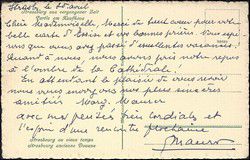 Strasb. le 
Strassburg aus vergangener Zeit
Partie am Kaufhaus
Chère Mademoiselle, Merci de tout cœur pour votre
belle carte d' et vos bonnes prières. Nous espé-
rons que vous avez passé d'excellentes vacances.
Quant à nous, nous avons pris notre repos
à l'ombre de la Cathédrale.
En attendant le plaisir de vous revoir
nous vous envoyons nos plus sincères
amitiés Marg. Maurer
avec mes pensées très cordiales et
l'espoir d'une rencontre prochaine
Strasbourg au vieux temps
Strasbourg ancienne Douane
Maurer